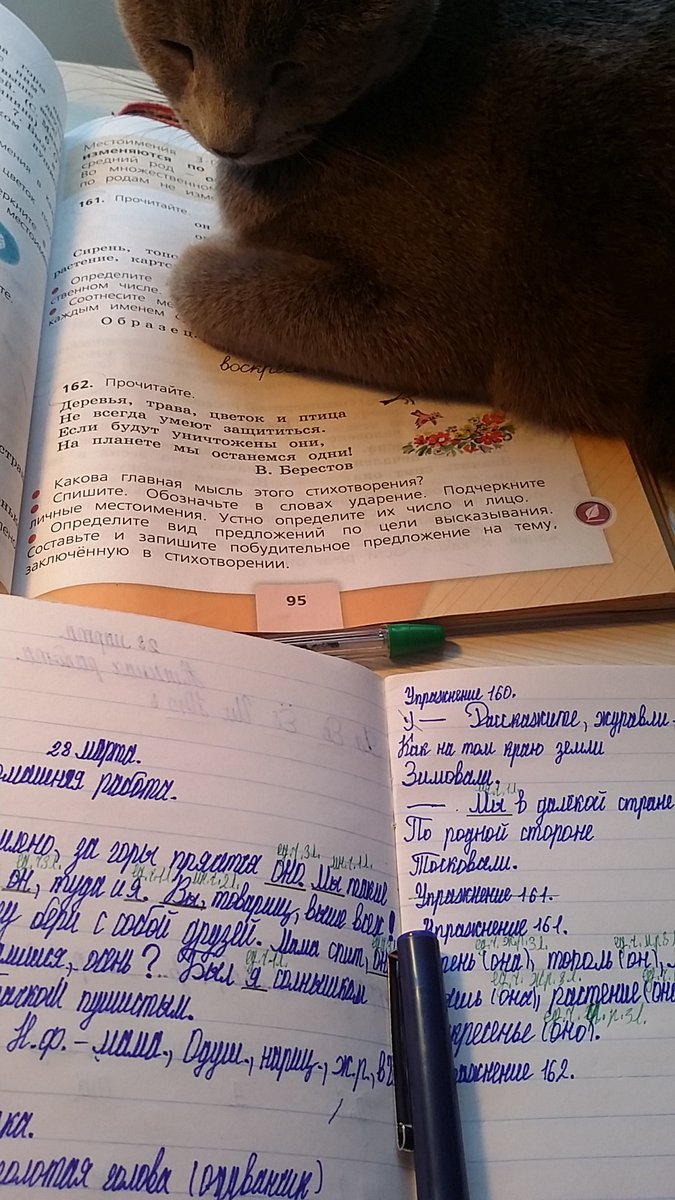 Местоимения 3-
изменяются по
средний род — о
Во множественном
по родам не изме
161. Прочитайте.
он
Сирень, топо
растение, карто
• Определите
ственном числе.
• Соотнесите ме
каждым именем
Образец.
воскресе
162. Прочитайте.
Деревья, трава, цветок и птица
Не всегда умеют защититься.
Если будут уничтожены они,
На планете мы останемся одни!
В. Берестов
• Какова главная мысль этого стихотворения?
• Спишите. Обозначьте в словах ударение. Подчеркните
личные местоимения. Устно определите их число и лицо.
• Определите вид предложений по цели высказывания.
Составьте и запишите побудительное предложение на тему,
заключённую в стихотворении.
95
28 марта.
омашняя работа.
за горы прячется оно. Мы такие
он, туда и я. Вы, товарищ, выше всех!
у бери с собой друзей. Мама спит, он
осень? Был я солнышком
пушистым.
Н.ф. - мама., Одуш., нариц., ж.р.,
ка.
золотая голова (одуванчик)
Упражнение 160.
У — Расскажите, журавли
Как на том краю земли
Зимовали.
— . Мы в далёкой стране
По родной стороне
Тосковали.
Упражнение 161.
Упражнение 161.
ень (она), тополь (он),
(она), растение (оно
кресенье (оно).
ражнение 162.